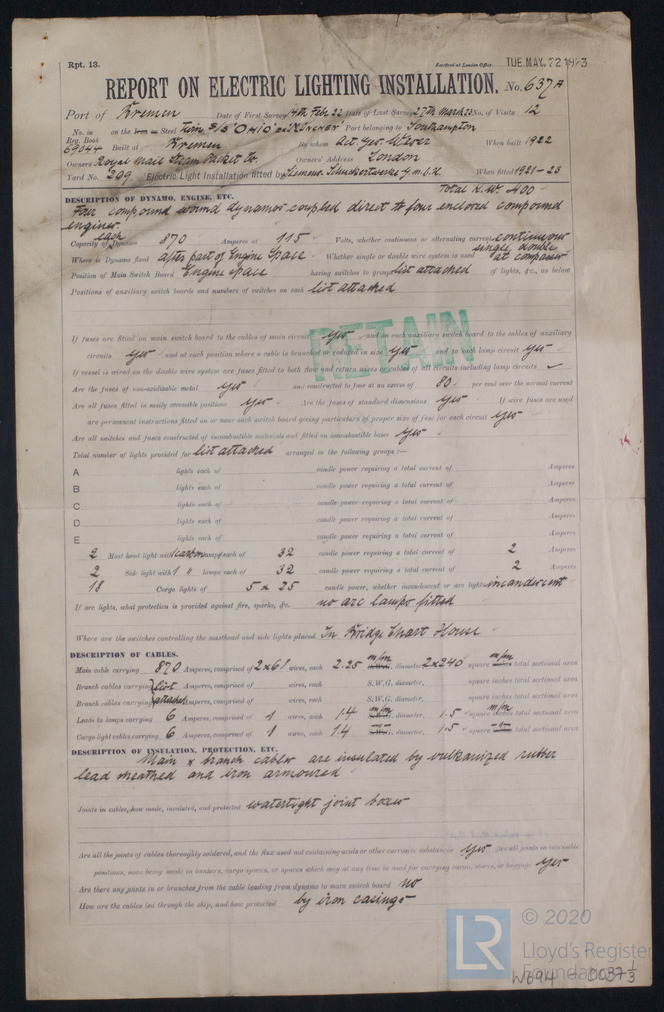 Rpt. 13.
Received at London Office TUE. MAY. 22 1923
REPORT ON ELECTRIC LIGHTING INSTALLATION. No. 637A
Port of Bremen Date of First Survey 14th Feb. 22 Date of Last Survey 27th March 23 No. of Visits 12
No. in Reg. Book on the Iron or Steel Twin S/S "OHIO" ex "MÜNCHEN" Port belonging to Southampton
69044 Built at Bremen By whom Act. Ges. Weser When built 1922
Owners Royal Mail Steam Packet Co. Owners' Address London
Yard No. 399 Electric Light Installation fitted by Siemens Schuckertwerke G.m.b.H. When fitted 1921-23
Total K.W. 400
DESCRIPTION OF DYNAMO, ENGINE, ETC.
Four compound wound dynamos coupled direct to four enclosed compound
engines
Capacity of each Dynamo 870 Amperes at 115 Volts, whether continuous or alternating current continuous
Where is Dynamo fixed after part of Engine Space Whether single or double wire system is used single, double at compasses
Position of Main Switch Board Engine space having switches to groups list attached of lights, &c., as below
Positions of auxiliary switch boards and numbers of switches on each list attached
RETAIN
If fuses are fitted on main switch board to the cables of main circuit yes and on each auxiliary switch board to the cables of auxiliary
circuits yes and at each position where a cable is branched or reduced in size yes and to each lamp circuit yes
If vessel is wired on the double wire system are fuses fitted to both flow and return wires or cables of all circuits including lamp circuits ✓
Are the fuses of non-oxidizable metal yes and constructed to fuse at an excess of 80 per cent over the normal current
Are all fuses fitted in easily accessible positions yes Are the fuses of standard dimensions yes If wire fuses are used
are permanent instructions fitted on or near each switch board giving particulars of proper size of fuse for each circuit yes
Are all switches and fuses constructed of incombustible materials and fitted on incombustible bases yes
Total number of lights provided for list attached arranged in the following groups :—
A lights each of candle power requiring a total current of Amperes
B lights each of candle power requiring a total current of Amperes
C lights each of candle power requiring a total current of Amperes
D lights each of candle power requiring a total current of Amperes
E lights each of candle power requiring a total current of Amperes
2 Mast head light with 1 carbon lamps each of 32 candle power requiring a total current of 2 Amperes
2 Side light with 1 " lamps each of 32 candle power requiring a total current of 2 Amperes
18 Cargo lights of 5 x 25 candle power, whether incandescent or arc lights incandescent
If arc lights, what protection is provided against fire, sparks, &c. no arc lamps fitted
Where are the switches controlling the masthead and side lights placed In Bridge Chart House
DESCRIPTION OF CABLES.
Main cable carrying 870 Amperes, comprised of 2x61 wires, each 2.25 m/m diameter, 2x240 square m/m total sectional area
Branch cables carrying list Amperes, comprised of wires, each S.W.G. diameter, square inches total sectional area
Branch cables carrying attached Amperes, comprised of wires, each S.W.G. diameter, square inches total sectional area
Leads to lamps carrying 6 Amperes, comprised of 1 wires, each 1.4 m/m diameter, 1.5 square m/m total sectional area
Cargo light cables carrying 6 Amperes, comprised of 1 wires, each 1.4 " diameter, 1.5 square " total sectional area
DESCRIPTION OF INSULATION, PROTECTION, ETC.
Main & branch cables are insulated by vulkanized rubber
lead sheathed and iron armoured
Joints in cables, how made, insulated, and protected watertight joint boxes
Are all the joints of cables thoroughly soldered, and the flux used not containing acids or other corrosive substances yes Are all joints in accessible
positions, none being made in bunkers, cargo spaces, or spaces which may at any time be used for carrying cargo, stores, or baggage yes
Are there any joints in or branches from the cable leading from dynamo to main switch board no
How are the cables led through the ship, and how protected by iron casings
LR
© 2020
Lloyd's Register
Foundation
W694-0037 1/3